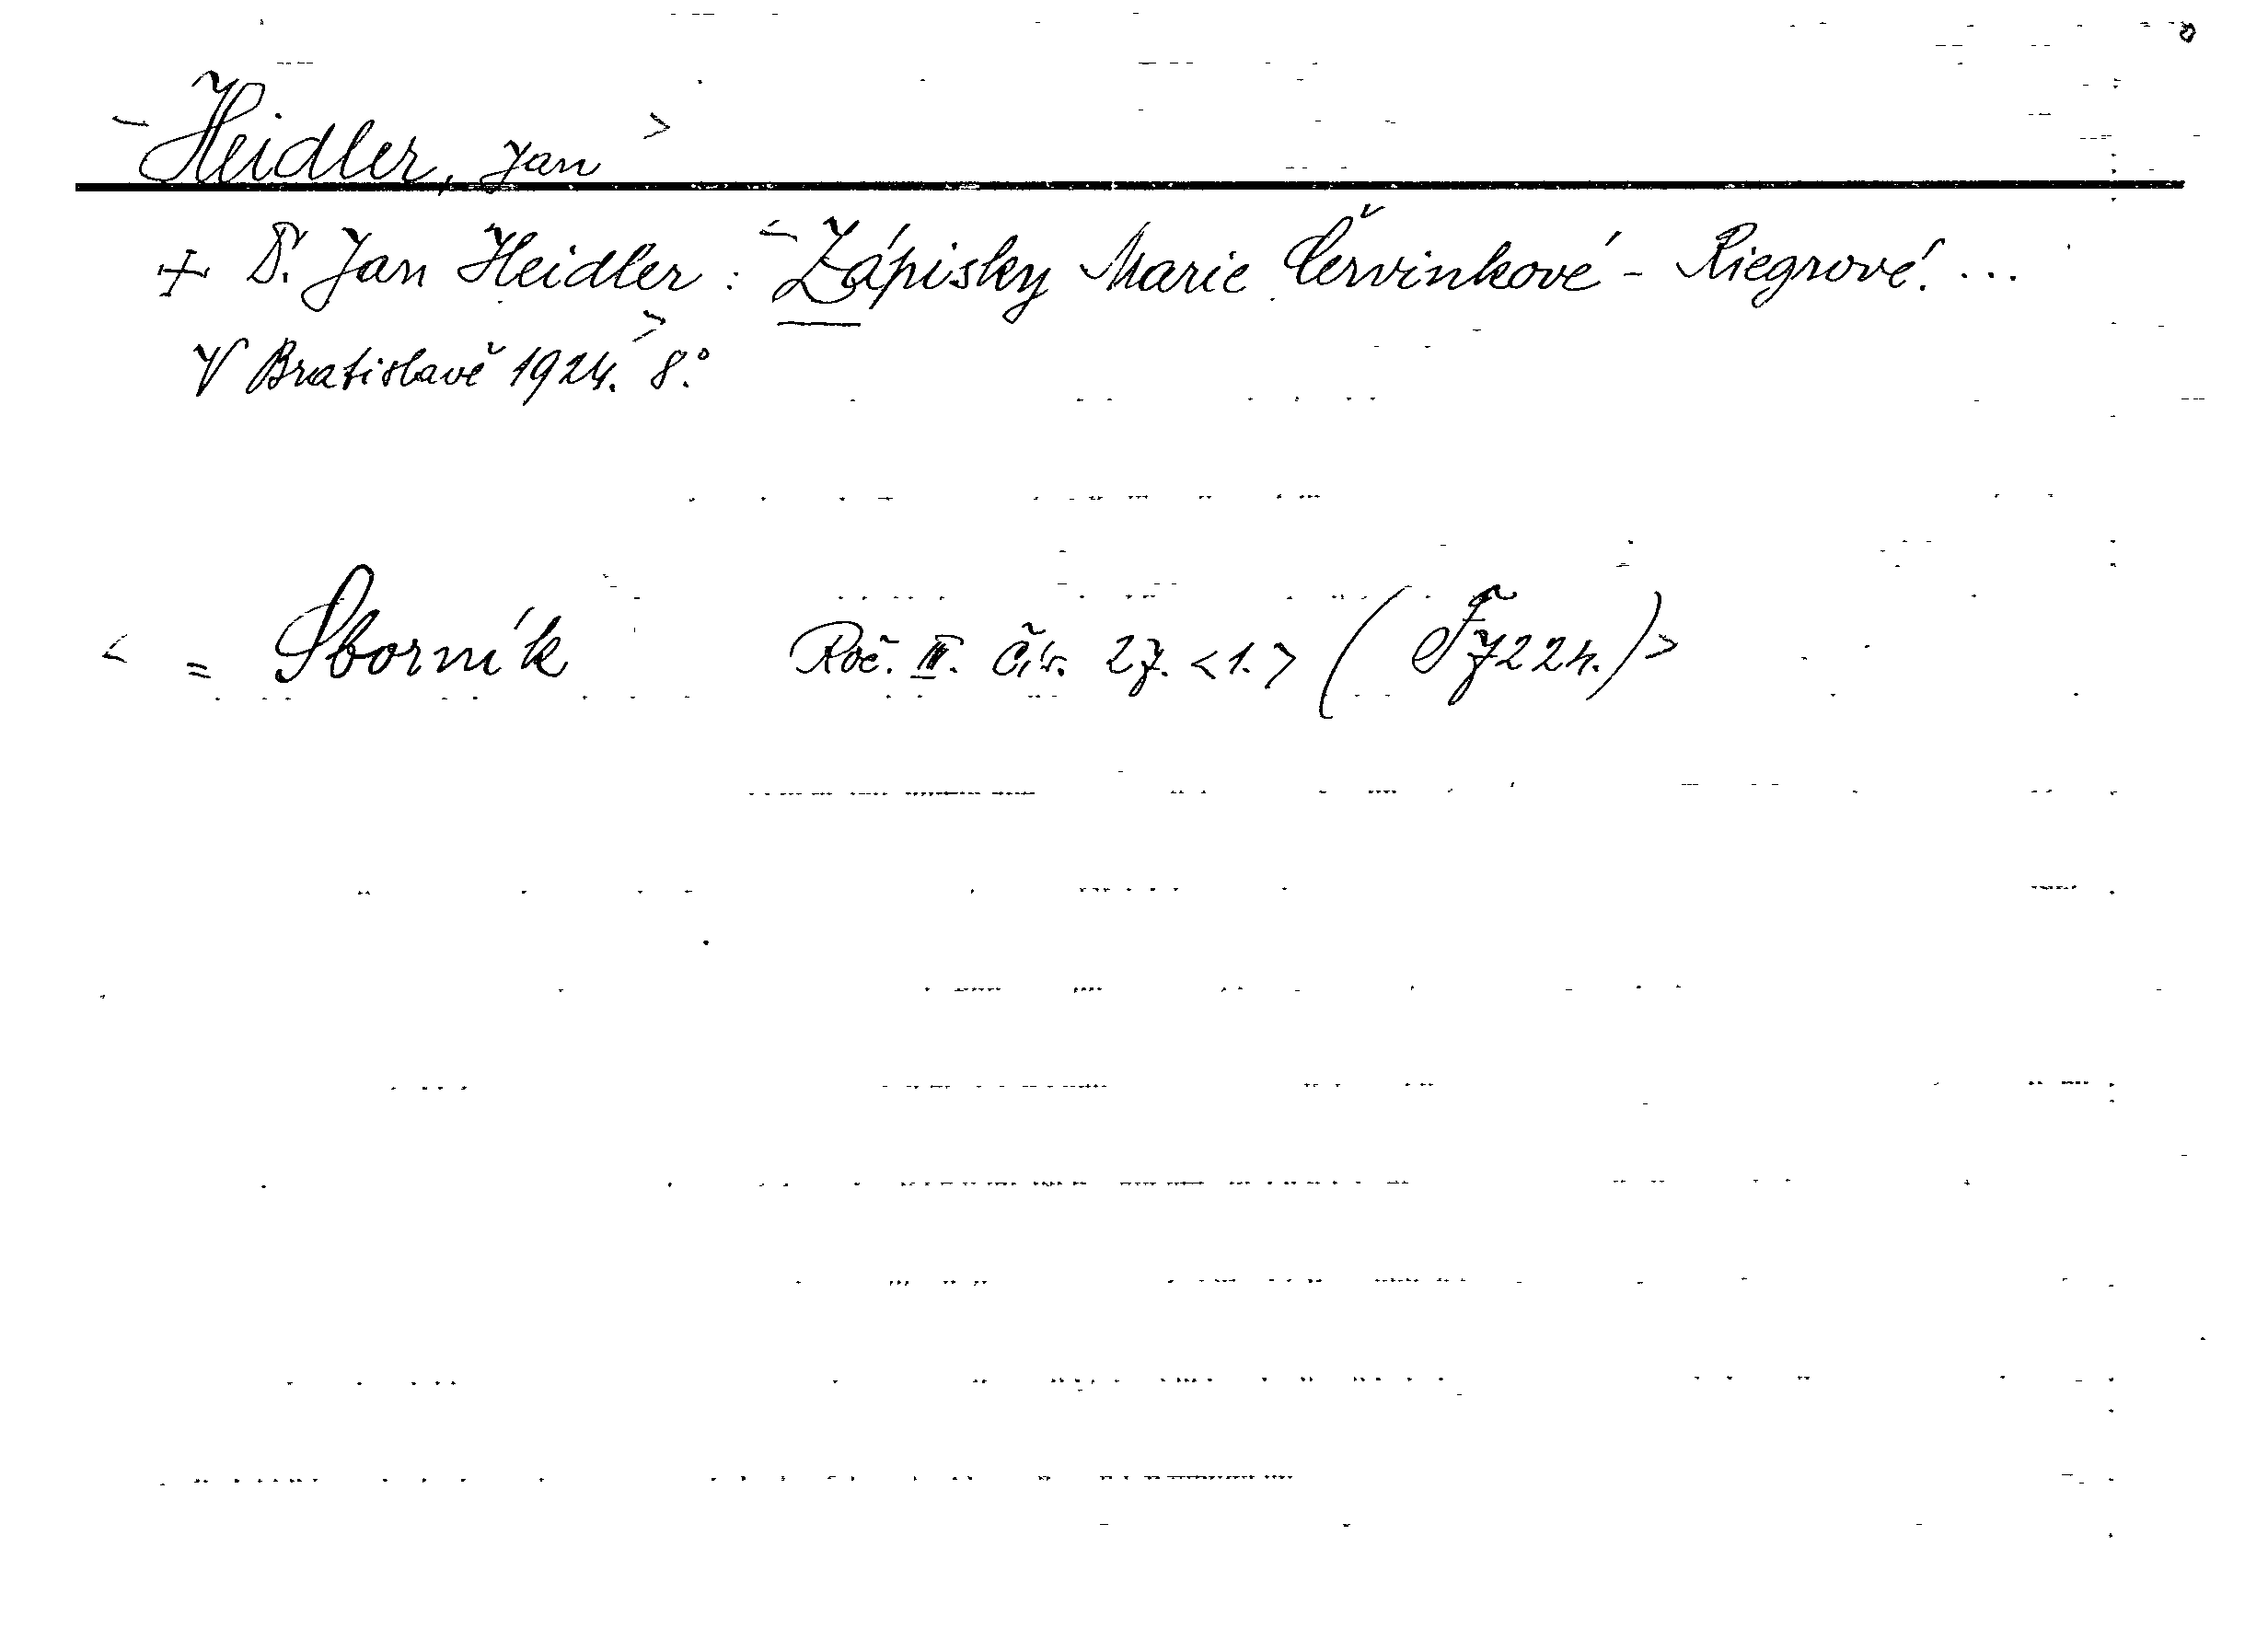 <Heidler, Jan>
+ D. Jan Heidler: <Zápisky Marie Červinkové - Riegrové. ...
V Bratislavě 1924.> 8.°
< = Sborník Roč. III. Čís. 27. <1.> ( 7224.)>